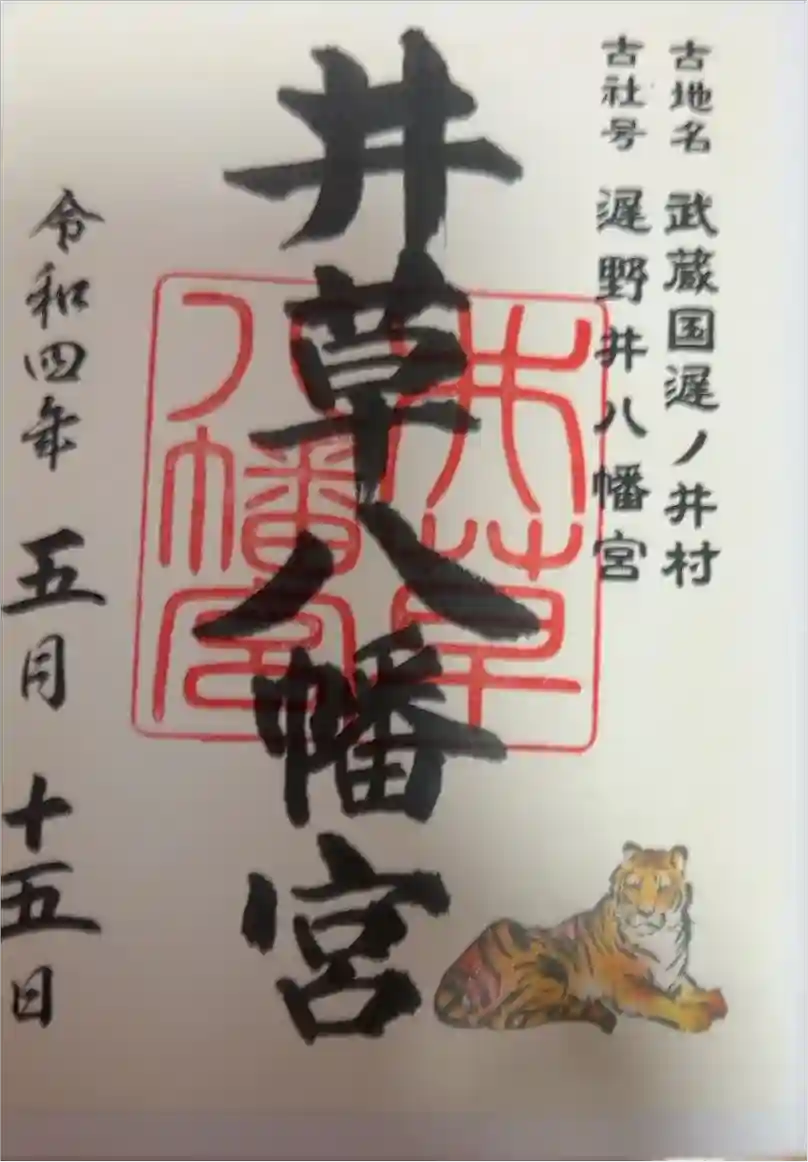 古地名 武蔵国遅ノ井村
古社号 遅野井八幡宮
井草八幡宮
井草
八幡宮
令和四年 五月 十五日